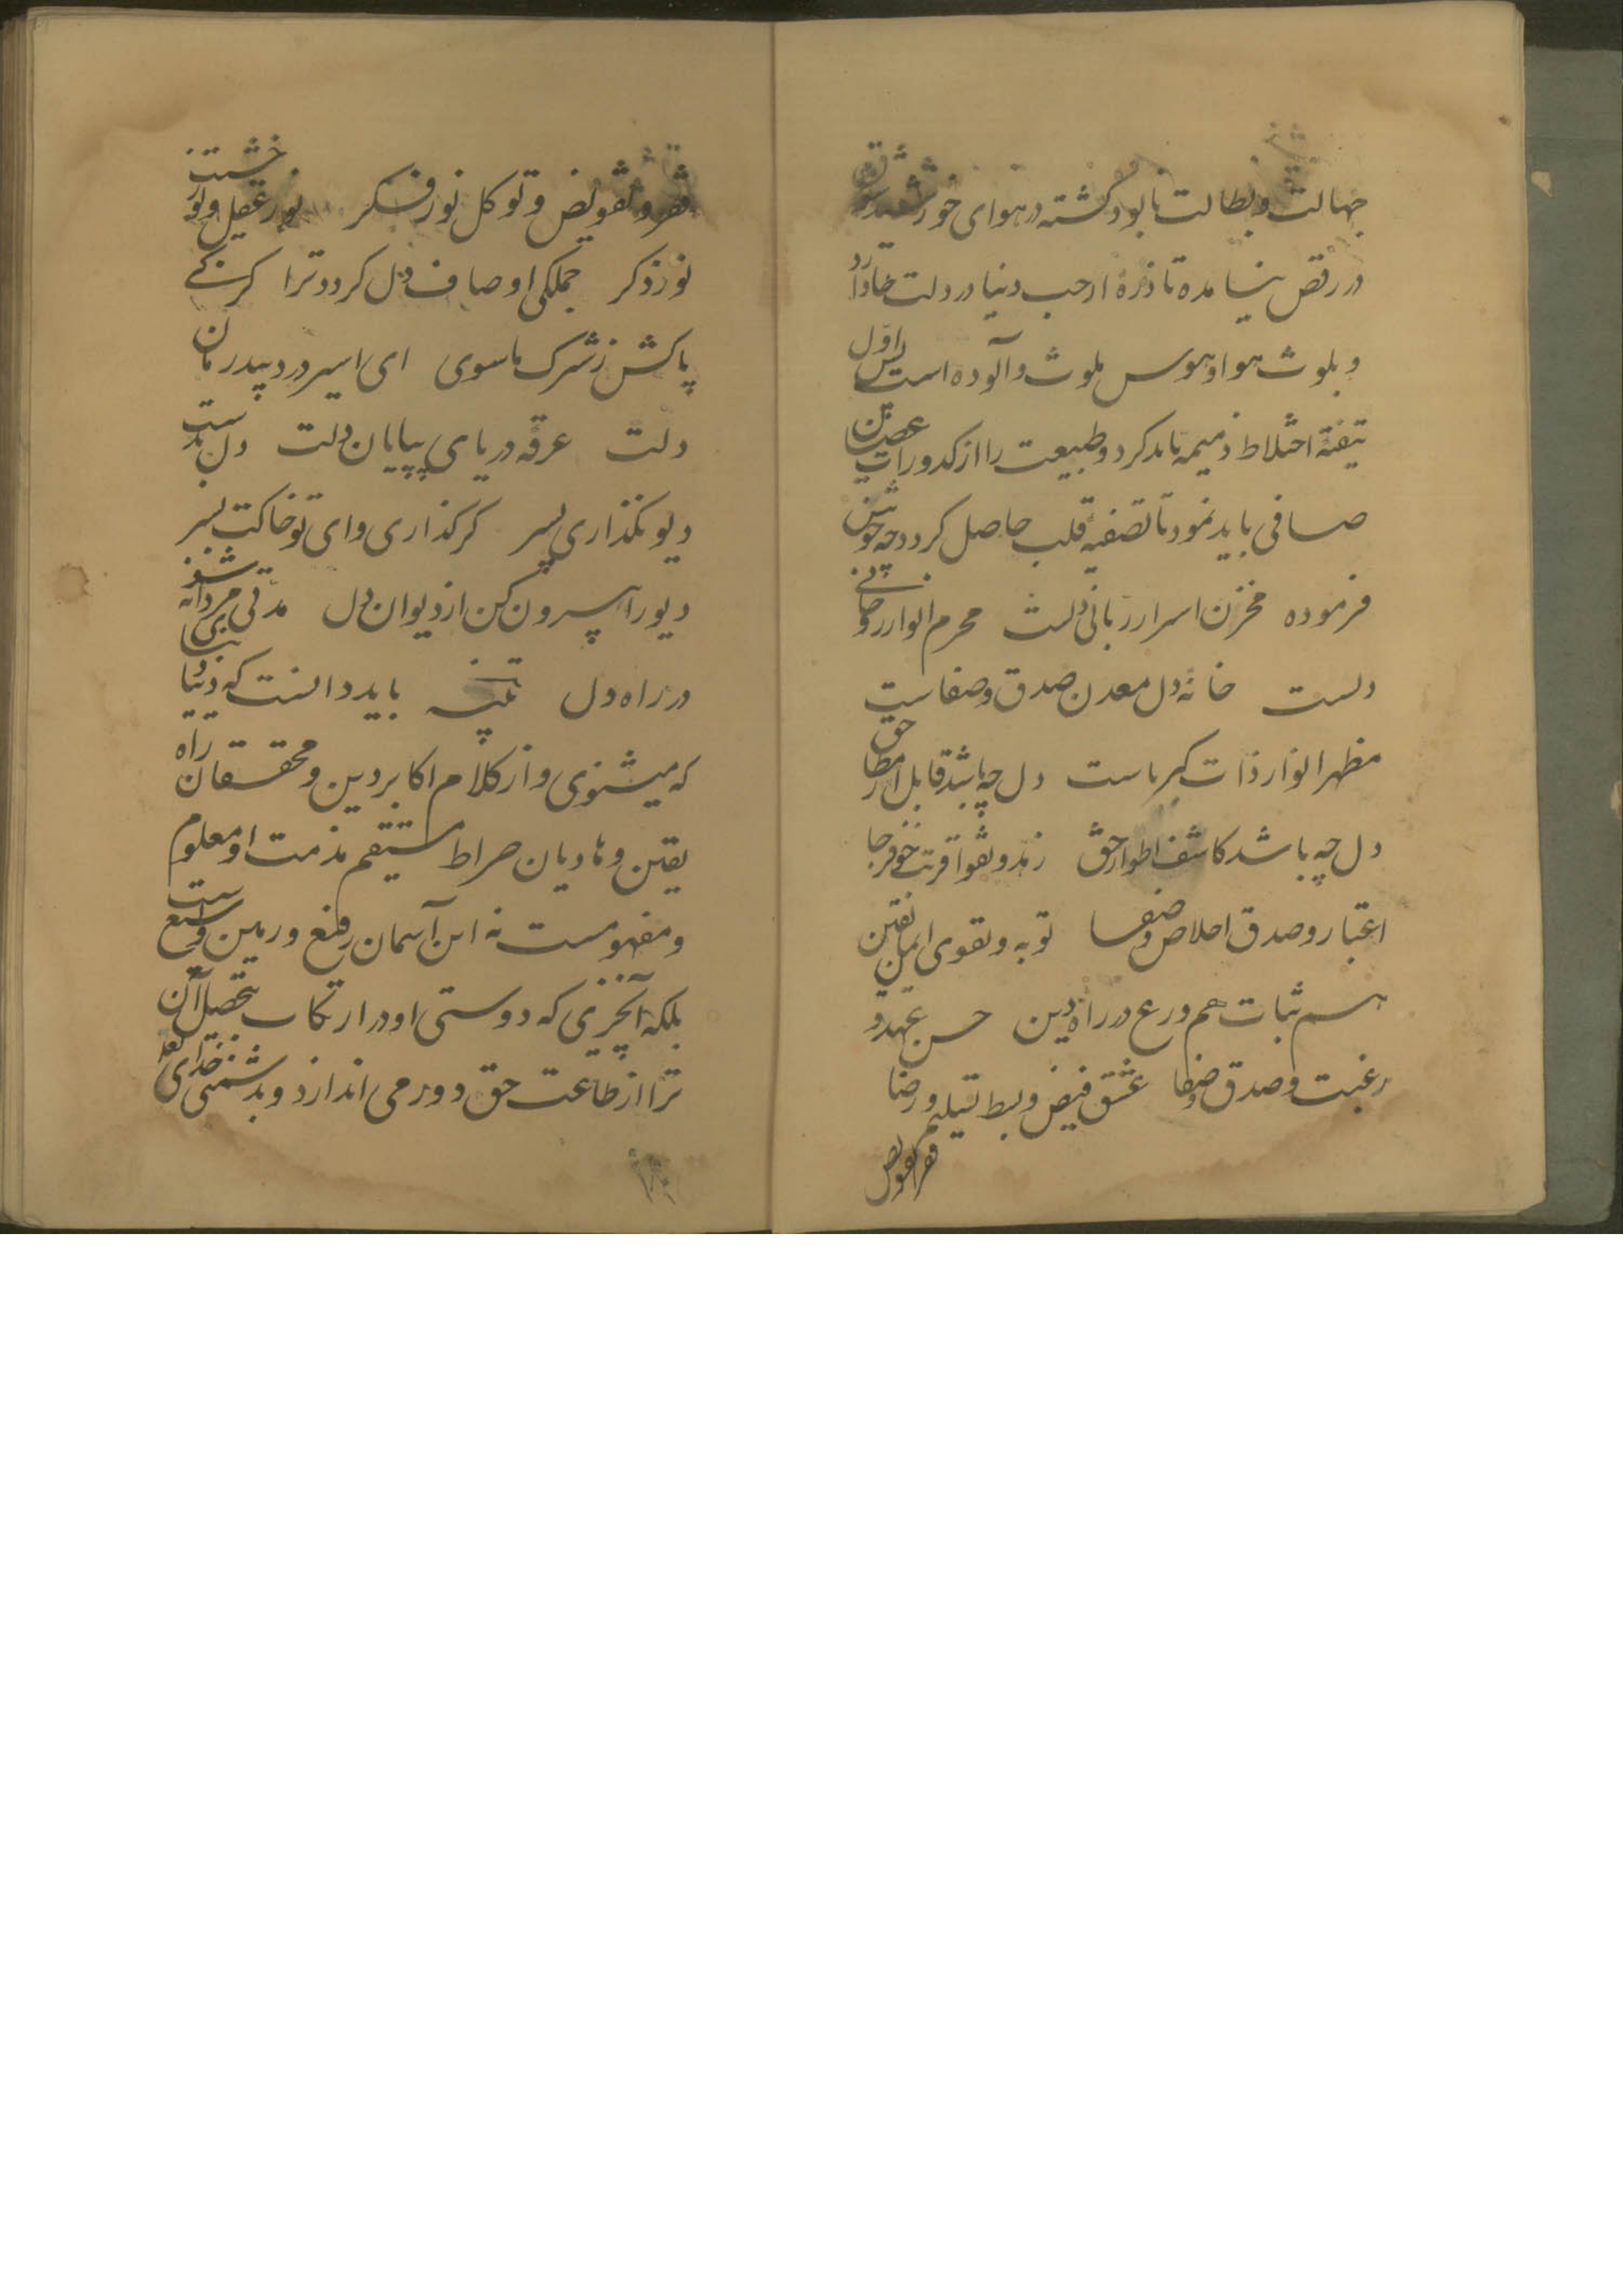 جهالت و بطالت نابود گشته در هوای خورشید
در رقص نیامده تا ذرهٔ از حب دنیا در دلت جا دارد
و بلوث هوا و هوس ملوث و آلوده است پس اول
تنقیهٔ اخلاط ذمیمه باید کرد و طبیعت را از کدورات عصیان
صافی باید نمود تا تصفیه قلب حاصل کردد چه خوش
فرموده مخزن اسرار ربانی دلست محرم انوار روحانی
دلست خانهٔ دل معدن صدق و صفاست
مظهر انوار ذات کبریاست دل چه باشد قابل انظار حق
دل چه باشد کاشف اطوار حق زهد و تقوا قربت خوف رجا
اعتبار و صدق اخلاص و صفا توبه و تقوی ایمان یقین
هم ثبات هم ورع در راه دین حسن عهد و
رغبت و صدق و صفا عشق قبض و بسط تسلیم و رضا
فقر تفویض
فقر و تفویض و توکل نور فکر نور عقل و نور
نور ذکر جملکی اوصاف دل کردد ترا کر کنی
پاکش ز شرک ماسوی ای اسیر درد بیدرمان
دلت غرقه دریای بی پایان دلت دل بدست
دیو نکذاری پسر کر کذاری وای تو خاکت بسر
دیو را بیرون کن از دیوان دل مدتی مردانه شو
در راه دل تنبیه باید دانست که دنیا
که میشنوی و از کلام اکابر دین و محققان راه
یقین و هادیان صراط مستقیم مذمت او معلوم
و مفهومست نه این آسمان رفیع و زمین وسیع است
بلکه آنچیزی که دوستی او در ارتکاب تحصیل آن
ترا از طاعت حق دور می اندازد و بدشمنی خدای